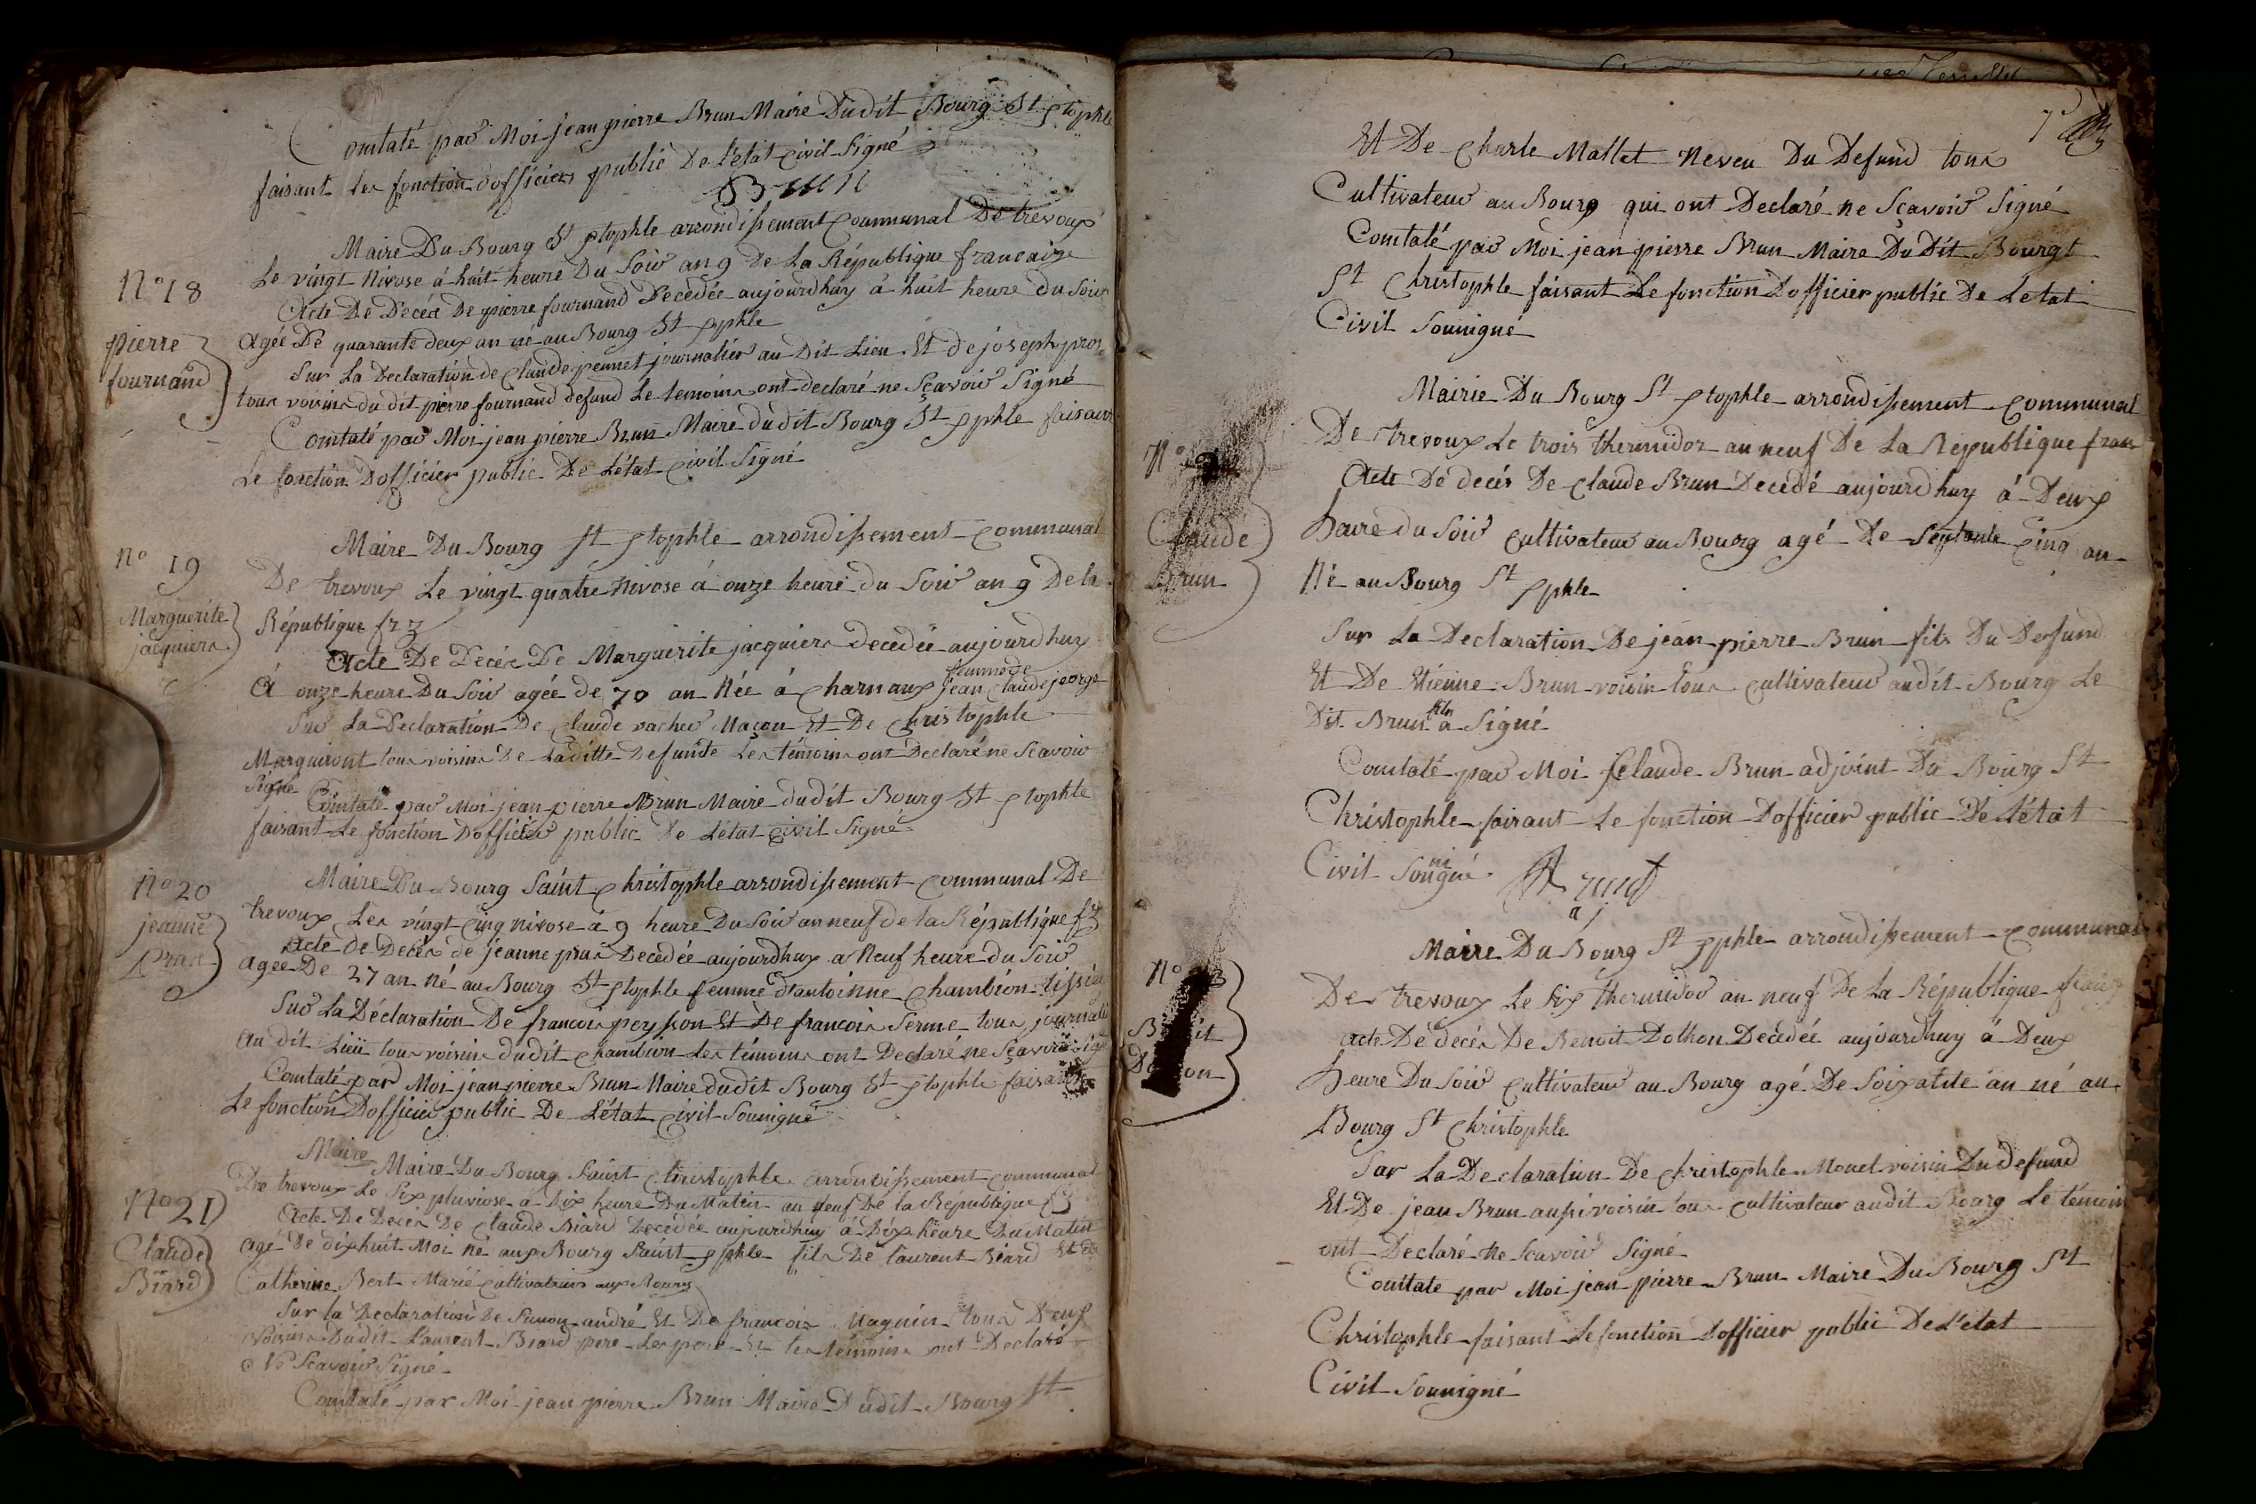 Constaté par Moi jean pierre Brun Maire Dudit Bourg St xtophle
faisant Les fonction dofficier public De L'etat civil Signé
Brun
Maire Du Bourg St xtophle arrondissement communal De trevoux
Le vingt Nivose á huit heure Du Soir an 9 De La République francaise
N° 18
Acte De Decés De pierre fournand Decedée aujourdhuy á huit heure du Soir
pierre
fournand
Agée De quarante deux an né au Bourg St xphle
Sur La Declaration de Claude pennet journalier au Dit Lieu Et de joseph pros
tous voisins du dit pierre fournand defund Le temoins ont declaré ne Sçavoir Signé
Constaté par Moi jean pierre Brun Maire dudit Bourg St xphle faisant
Le fonction Dofficier public De L'état civil Signé
Maire Du Bourg St xtophle arrondissement communal
N° 19
De trevoux Le vingt quatre Nivose á onze heure du Soir an 9 De la
Marguerite
jacquiers
République frz
Acte De Decés De Marguerite jacquiers decedée aujourdhuy
femme de
Á onze heure Du Soir agée de 70 an Née á Charnaux jean Claude jeorge
Sur La Declaration De Claude vacher Maçon Et De Christophle
Marguiront tous voisins De Laditte Defunde Les témoins ont Declaré ne Scavoir
Signé
Constaté par Moi jean pierre Brun Maire dudit Bourg St xtophle
faisant Le fonction Dofficier public De L'état civil Signé
N° 20
jeanne
pras
Maire Du Bourg Saint Christophle arrondissement communal De
trevoux Les vingt cinq nivose á 9 heure Du Soir an neuf de la République frz
acte de Decés de jeanne pras Decedée aujourdhuy a Neuf heure du Soir
agée De 27 an né au Bourg St xtophle femme d'antoinne Chambion
Sur La Déclaration De francois peysson Et De francois Serme tous journali
au dit Lieu tous voisins dudit Chambion Les témoins ont Declaré ne Sçavoir
Constaté par Moi jean pierre Brun Maire dudit Bourg St xtophle faisant
Le fonction Dofficier public De L'état civil Sousigné
Maire
Maire Du Bourg Saint Christophle arrondissement communal
N° 21
Claude
Biard
De trevoux Le Six pluviose a Dix heure Du Matin an neuf De la République
Acte De Decés De Claude Biard Decedée aujourdhuy á Dix heure Du Matin
agé De dixhuit Moi né aux Bourg Saint xphle fils De Laurent Biard Et de
Catherine Bert Marié cultivatrier aux Bourg
Sur la Declaration De Simon andré Et De francois Magnin tous Deux
voisins Dudit Laurent Biard pere Les pere Et les témoins ont Declaré
Ne Scavoir Signé
Constaté par Moi jean pierre Brun Maire Dudit Bourg St
7
Et De Charle Mallet Neveu Du Defund tous
Cultivateur au Bourg qui ont Declaré ne Sçavoir Signé
Constaté par Moi jean pierre Brun Maire Du Dit Bourgt
St Christophle faisant Le fonction Dofficier public De Letat
Civil Sousigné
Mairie Du Bourg St xtophle arrondissement communal
De trevoux Le trois thermidor an neuf De La République fran
N°
Claude
Brun
Acte De decés De Claude Brun Decedé aujourdhuy á Deux
haure du Soir Cultivateur au Bourg agé De Septante Cinq an
Né au Bourg St xphle
Sur La Declaration De jean pierre Brun fils Du Defund
Et De Etienne Brun voisin tous cultivateur audit Bourg Le
Dit Brun fils a Signé
Constaté par Moi Claude Brun adjoint Du Bourg St
Christophle faisant Le fonction Dofficier public De L'état
Civil Sousigné
Brun
aj
Maire Du Bourg St xphle arrondissement communal
De trevoux Le Six thermidor an neuf De La République
acte De decés De Benoit Dothon Decédée aujourdhuy á Deux
heure Du Soir cultivateur au Bourg agé De Soixatnte an né au
Bourg St Christophle
Sur La Declaration De Christophle Monel voisin Du defund
Et De jean Brun aussi voisin tous cultivateur audit Bourg Le témoin
ont Declaré Ne Scavoir Signé
Constate par Moi jean pierre Brun Maire Du Bourg St
Christophle faisant Le fonction Dofficier public De L'etat
Civil Sousigné